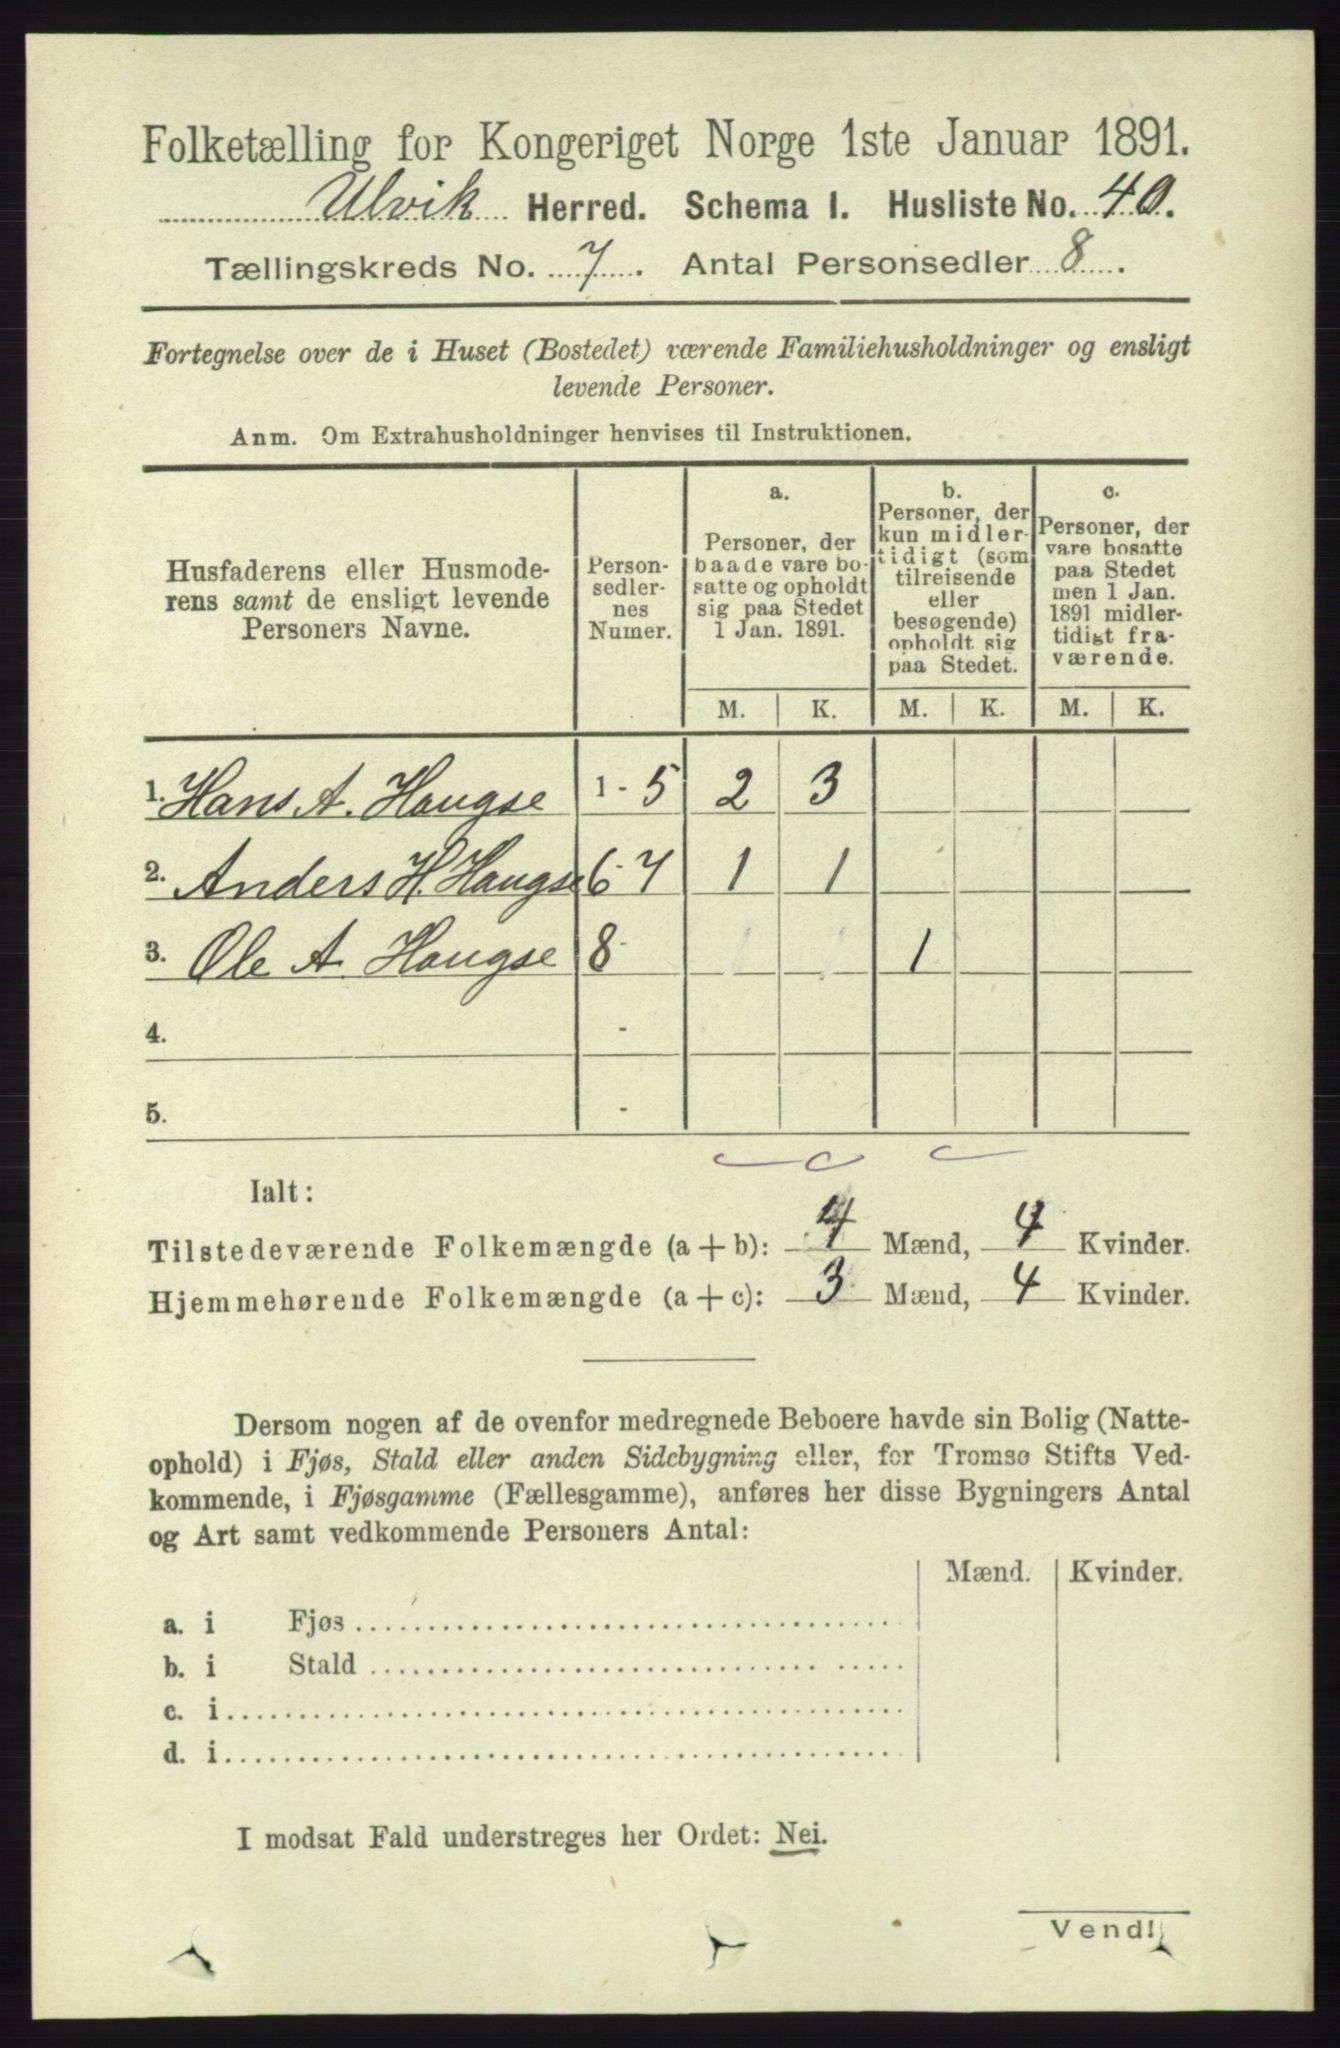 Folketælling for Kongeriget Norge 1ste Januar 1891.
Ulvik Herred. Schema I. Husliste No. 40.
Tællingskreds No. 7. Antal Personsedler 8.
Fortegnelse over de i Huset (Bostedet) værende Familiehusholdninger og ensligt
levende Personer.
Anm. Om Extrahusholdninger henvises til Instruktionen.
Husfaderens eller Husmode-
rens samt de ensligt levende
Personers Navne.
Person-
sedler-
nes
Numer.
a.
Personer, der
baade vare bo-
satte og opholdt
sig paa Stedet
1 Jan. 1891.
b.
Personer, der
kun midler-
tidigt (som
tilreisende
eller
besøgende)
opholdt sig
paa Stedet.
c.
Personer, der
vare bosatte
paa Stedet
men 1 Jan.
1891 midler-
tidigt fra-
værende.
M. K. M. K. M. K.
1. Hans A. Haugse 1 - 5 2 3
2. Anders H. Haugse 6 - 7 1 1
3. Ole A. Haugse 8 - 1
4. -
5. -
Ialt:
Tilstedeværende Folkemængde (a + b): 4 Mænd, 4 Kvinder.
Hjemmehørende Folkemængde (a + c): 3 Mænd, 4 Kvinder.
Dersom nogen af de ovenfor medregnede Beboere havde sin Bolig (Natte-
ophold) i Fjøs, Stald eller anden Sidebygning eller, for Tromsø Stifts Ved-
kommende, i Fjøsgamme (Fællesgamme), anføres her disse Bygningers Antal
og Art samt vedkommende Personers Antal:
Mænd. Kvinder.
a. i Fjøs
b. i Stald
c. i
d. i
I modsat Fald understreges her Ordet: Nei.
Vend!